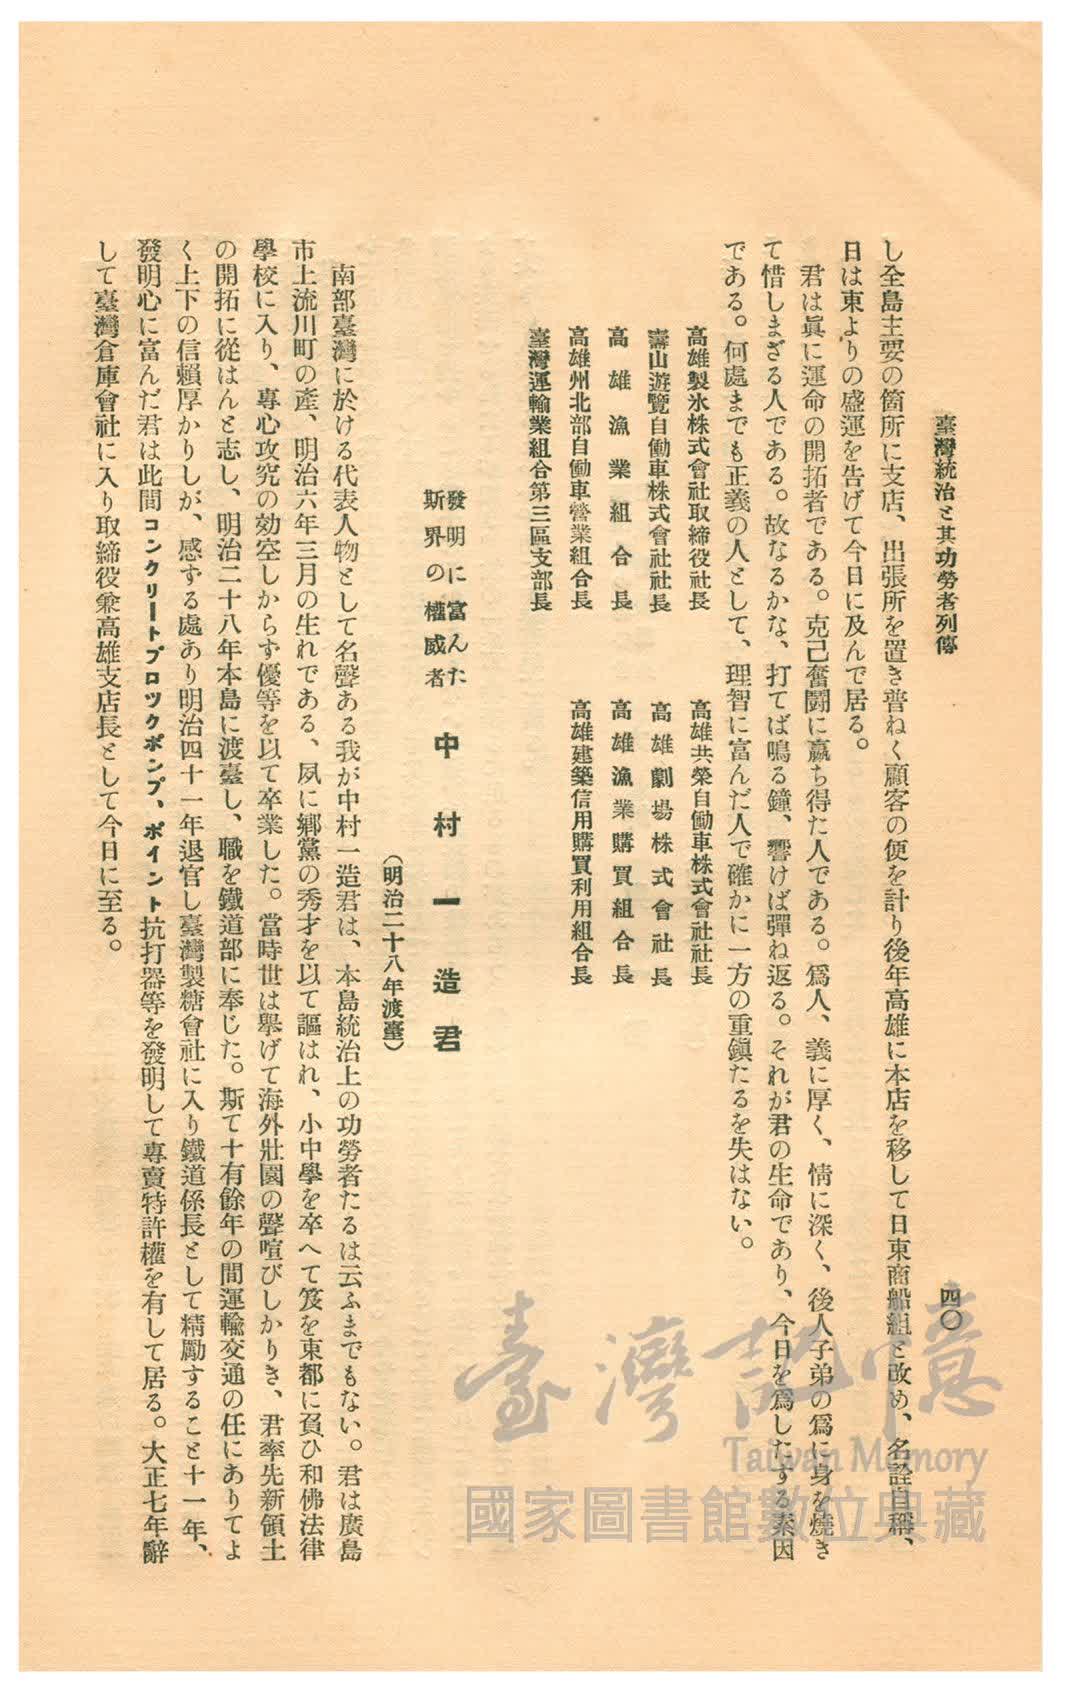 臺灣統治と其功勞者列傳
四〇
し全島主要の箇所に支店、出張所を置き普ねく顧客の便を計り後年高雄に本店を移して日東商船組と改め、名詮自稱、
日は東よりの盛運を告げて今日に及んで居る。
君は眞に運命の開拓者である。克己奮鬪に贏ち得た人である。爲人、義に厚く、情に深く、後人子弟の爲に身を燒き
て惜しまざる人である。故なるかな、打てば鳴る鐘、響けば彈ね返る。それが君の生命であり、今日を爲したする素因
である。何處までも正義の人として、理智に富んだ人で確かに一方の重鎭たるを失はない。
高雄製氷株式會社取締役社長
高雄共榮自働車株式會社社長
壽山遊覽自働車株式會社社長
高雄劇場株式會社長
高雄漁業組合長
高雄漁業購買組合長
高雄州北部自働車營業組合長
高雄建築信用購買利用組合長
臺灣運輸業組合第三區支部長
發明に富んた
斯界の權威者
中村一造君
（明治二十八年渡臺）
南部臺灣に於ける代表人物として名聲ある我が中村一造君は、本島統治上の功勞者たるは云ふまでもない。君は廣島
市上流川町の產、明治六年三月の生れである、夙に鄕黨の秀才を以て謳はれ、小中學を卒へて笈を東都に負ひ和佛法律
學校に入り、專心攻究の効空しからず優等を以て卒業した。當時世は擧げて海外壯圖の聲喧びしかりき、君率先新領土
の開拓に從はんと志し、明治二十八年本島に渡臺し、職を鐵道部に奉じた。斯て十有餘年の間運輸交通の任にありてよ
く上下の信賴厚かりしが、感ずる處あり明治四十一年退官し臺灣製糖會社に入り鐵道係長として精勵すること十一年、
發明心に富んだ君は此間コンクリートブロツクポンプ、ポイント抗打器等を發明して專賣特許權を有して居る。大正七年辭
して臺灣倉庫會社に入り取締役兼高雄支店長として今日に至る。
臺灣記憶
Taiwan Memory
國家圖書館數位典藏